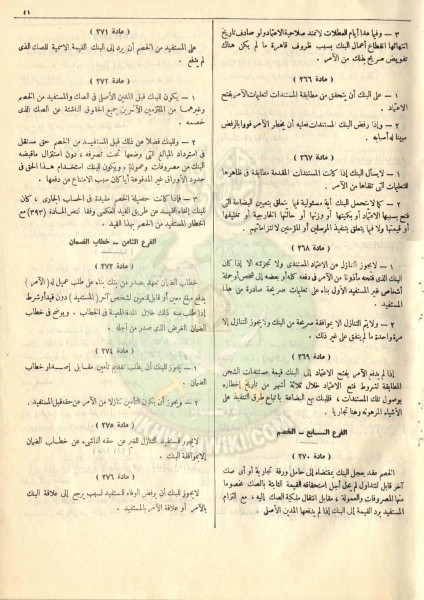 ٤١
٣ — وفيما عدا أيام العطلات لا تمتد صلاحية الاعتماد ولو صادف تاريخ
انتهائها انقطاع أعمال البنك بسبب ظروف قاهرة ما لم يكن هناك
تفويض صريح بذلك من الآمر .
( مادة ٣٦٦ )
١ — على البنك أن يتحقق من مطابقة المستندات لتعليمات الآمر بفتح
الاعتماد .
٢ — وإذا رفض البنك المستندات فعليه أن يخطر الآمر فورا بالرفض
مبينا له أسبابه .
( مادة ٣٦٧ )
١ — لا يسأل البنك إذا كانت المستندات المقدمة مطابقة فى ظاهرها
للتعليمات التى تلقاها من الآمر .
٢ — كما لا يتحمل البنك أية مسئولية فيما يتعلق بتعيين البضاعة التى
فتح بسببها الاعتماد أو بكميتها أو وزنها أو حالتها الخارجية أو تغليفها
أو قيمتها ولا فيما يتعلق بتنفيذ المرسلين أو المؤمنين لالتزاماتهم .
( مادة ٣٦٨ )
١ — لا يجوز التنازل عن الاعتماد المستندى ولا تجزئته إلا إذا كان
البنك الذى فتحه مأذونا من الآمر فى دفعه كله أو بعضه إلى شخص أو جملة
أشخاص غير المستفيد الأول بناء على تعليمات صريحة صادرة من هذا
المستفيد .
٢ — ولا يتم التنازل إلا بموافقة صريحة من البنك ولا يجوز التنازل إلا
مرة واحدة ما لم يتفق على غير ذلك .
( مادة ٣٦٩ )
إذا لم يدفع الآمر بفتح الاعتماد إلى البنك قيمة مستندات الشحن
المطابقة لشروط فتح الاعتماد خلال ثلاثة أشهر من تاريخ إخطاره
بوصول تلك المستندات ، فللبنك بيع البضاعة باتباع طرق التنفيذ على
الأشياء المرهونة رهنا تجاريا .
الفرع السابع — الخصم
( مادة ٣٧٠ )
الخصم عقد يعجل البنك بمقتضاه إلى حامل ورقة تجارية أو أى صك
آخر قابل للتداول لم يحل أجل استحقاقه القيمة الثابتة بالصك مخصوما
منها المصروفات والعمولة ، مقابل انتقال ملكية الصك إليه ، مع التزام
المستفيد برد القيمة إلى البنك إذا لم يدفعها المدين الأصلى .
( مادة ٣٧١ )
على المستفيد من الخصم أن يرد إلى البنك القيمة الاسمية للصك الذى
لم يدفع .
( مادة ٣٧٢ )
١ — يكون للبنك قبل المدين الأصلى فى الصك والمستفيد من الخصم
وغيرهما من الملتزمين الآخرين جميع الحقوق الناشئة عن الصك الذى
خصمه .
٢ — وللبنك فضلا عن ذلك قبل المستفيد من الخصم حق مستقل
فى استرداد المبالغ التى وضعها تحت تصرفه ، دون استنزال ما قبضه
من مصروفات وعمولة ، ويكون للبنك استخدام هذا الحق فى
حدود الأوراق غير المدفوعة أيا كان سبب الامتناع عن دفعها .
٣ — فإذا كانت حصيلة الخصم مقيدة فى الحساب الجارى ، كان
للبنك إلغاء القيد عن طريق القيد العكسى وفقا لنص المادة (٣٩٣) مع
اخطار المستفيد من الخصم بهذا القيد .
الفرع الثامن — خطاب الضمان
( مادة ٣٧٣ )
خطاب الضمان تعهد يصدر من بنك بناء على طلب عميل له ( الآمر )
بدفع مبلغ معين أو قابل للتعيين لشخص آخر ( المستفيد ) دون قيد أو شرط
إذا طلب منه ذلك خلال المدة المعينة فى الخطاب . ويوضح فى خطاب
الضمان الغرض الذى صدر من أجله .
( مادة ٣٧٤ )
١ — يجوز للبنك أن يطلب تقديم تأمين مقابل إصدار خطاب
الضمان .
٢ — ويجوز أن يكون التأمين تنازلا من الآمر عن حقه قبل المستفيد .
( مادة ٣٧٥ )
لا يجوز للمستفيد التنازل للغير عن حقه الناشىء عن خطاب الضمان
إلا بموافقة البنك .
( مادة ٣٧٦ )
لا يجوز للبنك أن يرفض الوفاء للمستفيد لسبب يرجع إلى علاقة البنك
بالآمر أو علاقة الآمر بالمستفيد .
IKHWANWIKI.COM